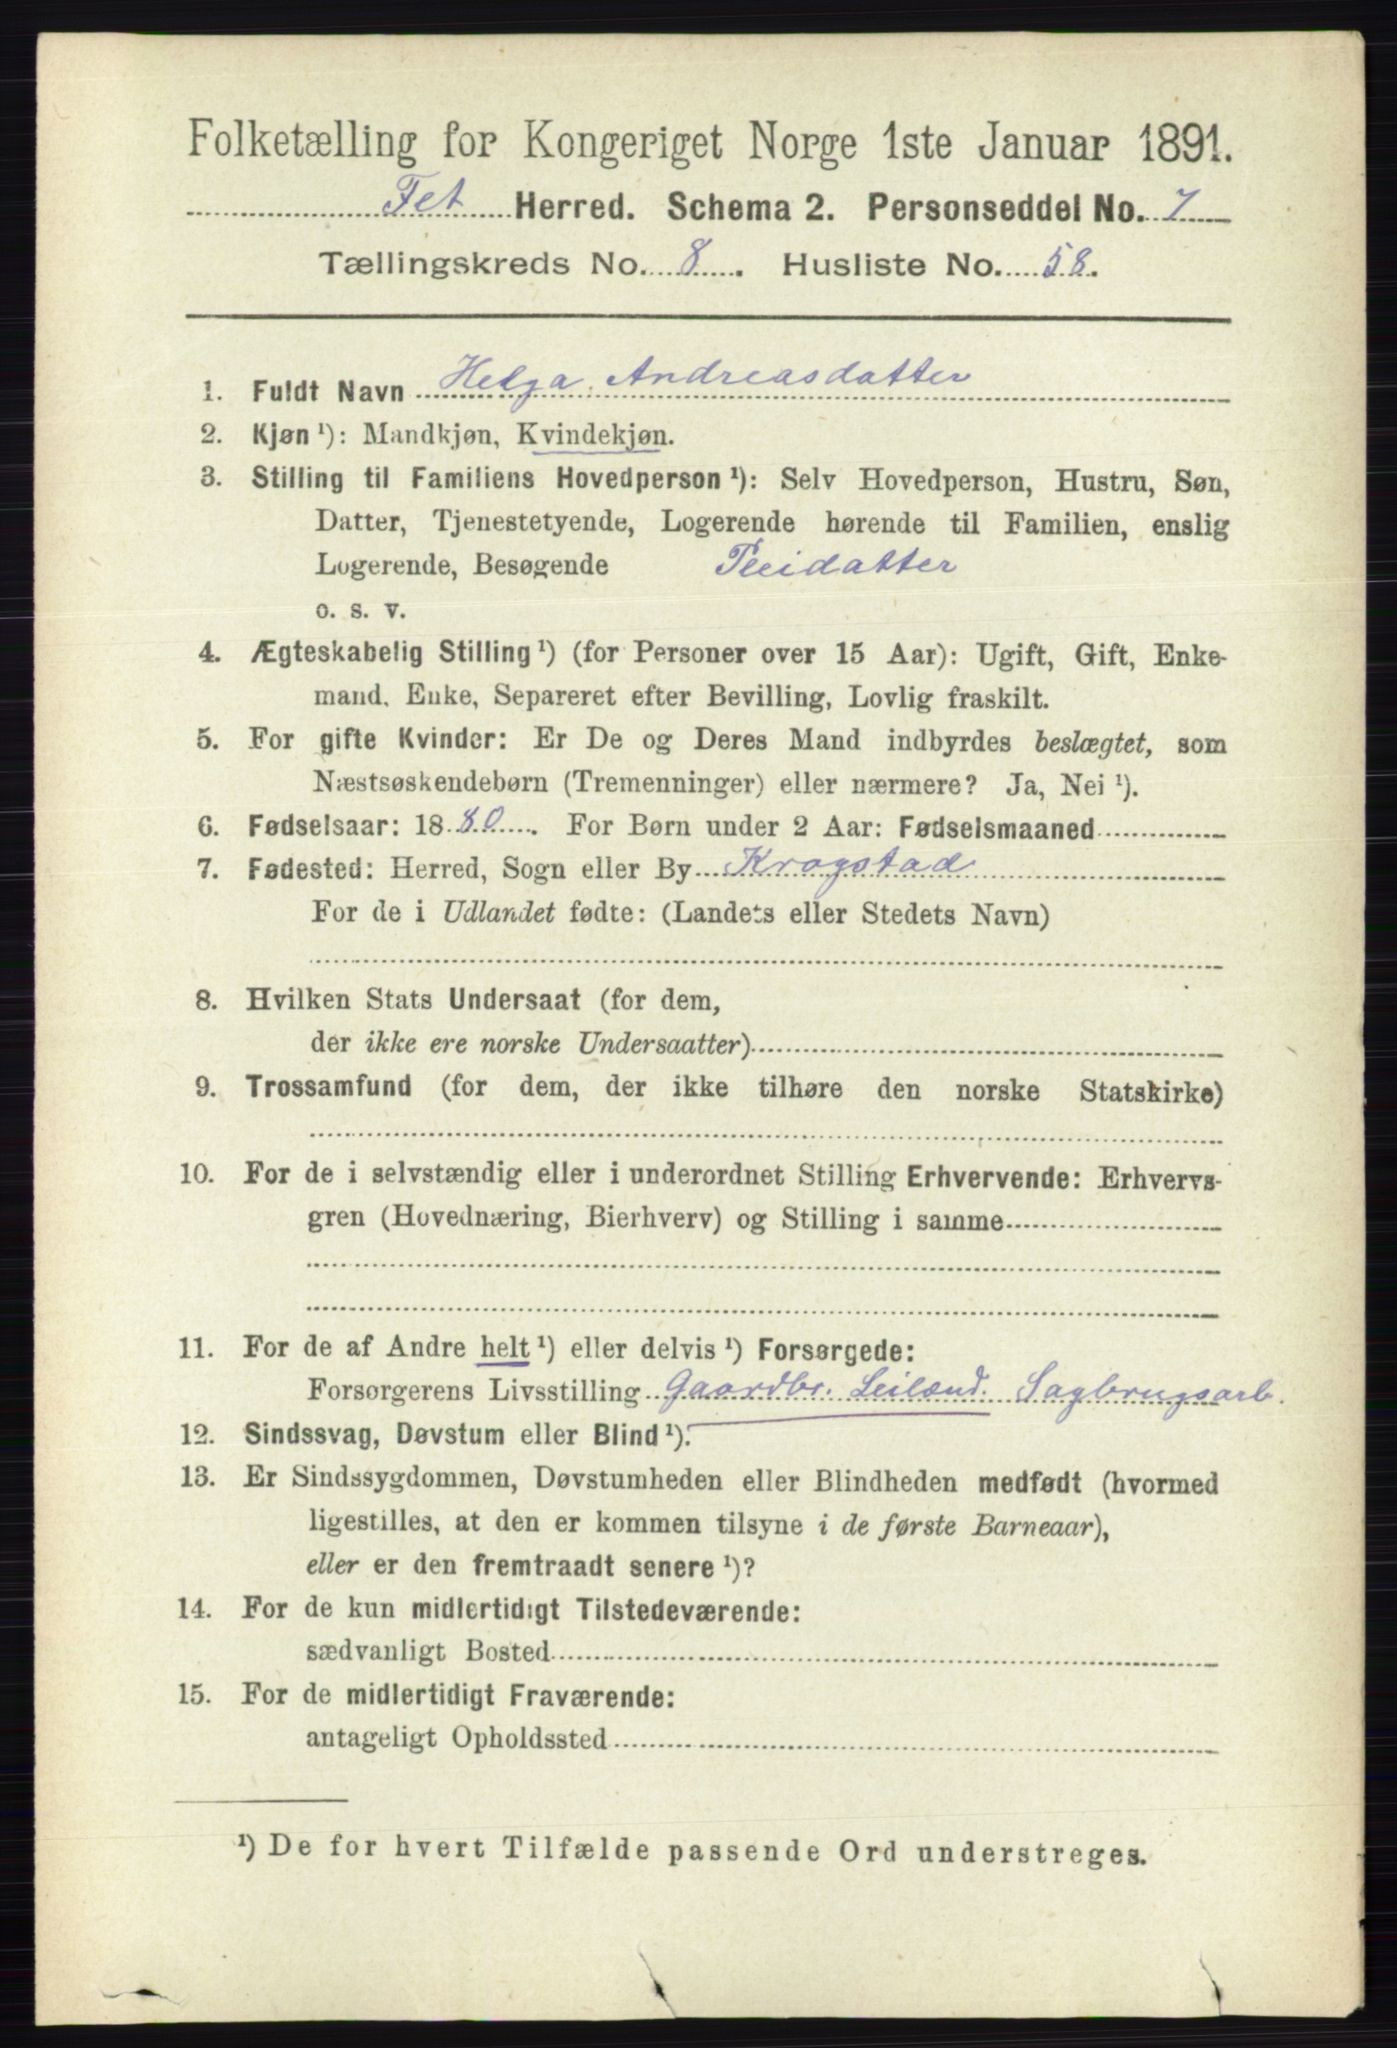 Folketælling for Kongeriget Norge 1ste Januar 1891.
Fet Herred. Schema 2. Personseddel No. 7
Tællingskreds No. 8. Husliste No. 58.
1. Fuldt Navn Helga Andreasdatter
2. Kjøn ¹): Mandkjøn, Kvindekjøn.
3. Stilling til Familiens Hovedperson ¹): Selv Hovedperson, Hustru, Søn,
Datter, Tjenestetyende, Logerende hørende til Familien, enslig
Logerende, Besøgende Pleidatter
o. s. v.
4. Ægteskabelig Stilling ¹) (for Personer over 15 Aar): Ugift, Gift, Enke-
mand, Enke, Separeret efter Bevilling, Lovlig fraskilt.
5. For gifte Kvinder: Er De og Deres Mand indbyrdes beslægtet, som
Næstsøskendebørn (Tremenninger) eller nærmere? Ja, Nei ¹).
6. Fødselsaar: 1880. For Børn under 2 Aar: Fødselsmaaned
7. Fødested: Herred, Sogn eller By Krogstad
For de i Udlandet fødte: (Landets eller Stedets Navn)
8. Hvilken Stats Undersaat (for dem,
der ikke ere norske Undersaatter)
9. Trossamfund (for dem, der ikke tilhøre den norske Statskirke)
10. For de i selvstændig eller i underordnet Stilling Erhvervende: Erhvervs-
gren (Hovednæring, Bierhverv) og Stilling i samme
11. For de af Andre helt ¹) eller delvis ¹) Forsørgede:
Forsørgerens Livsstilling Gaardbr. Leilænd. Sagbrugsarb.
12. Sindssvag, Døvstum eller Blind ¹).
13. Er Sindssygdommen, Døvstumheden eller Blindheden medfødt (hvormed
ligestilles, at den er kommen tilsyne i de første Barneaar),
eller er den fremtraadt senere ¹)?
14. For de kun midlertidigt Tilstedeværende:
sædvanligt Bosted
15. For de midlertidigt Fraværende:
antageligt Opholdssted
¹) De for hvert Tilfælde passende Ord understreges.